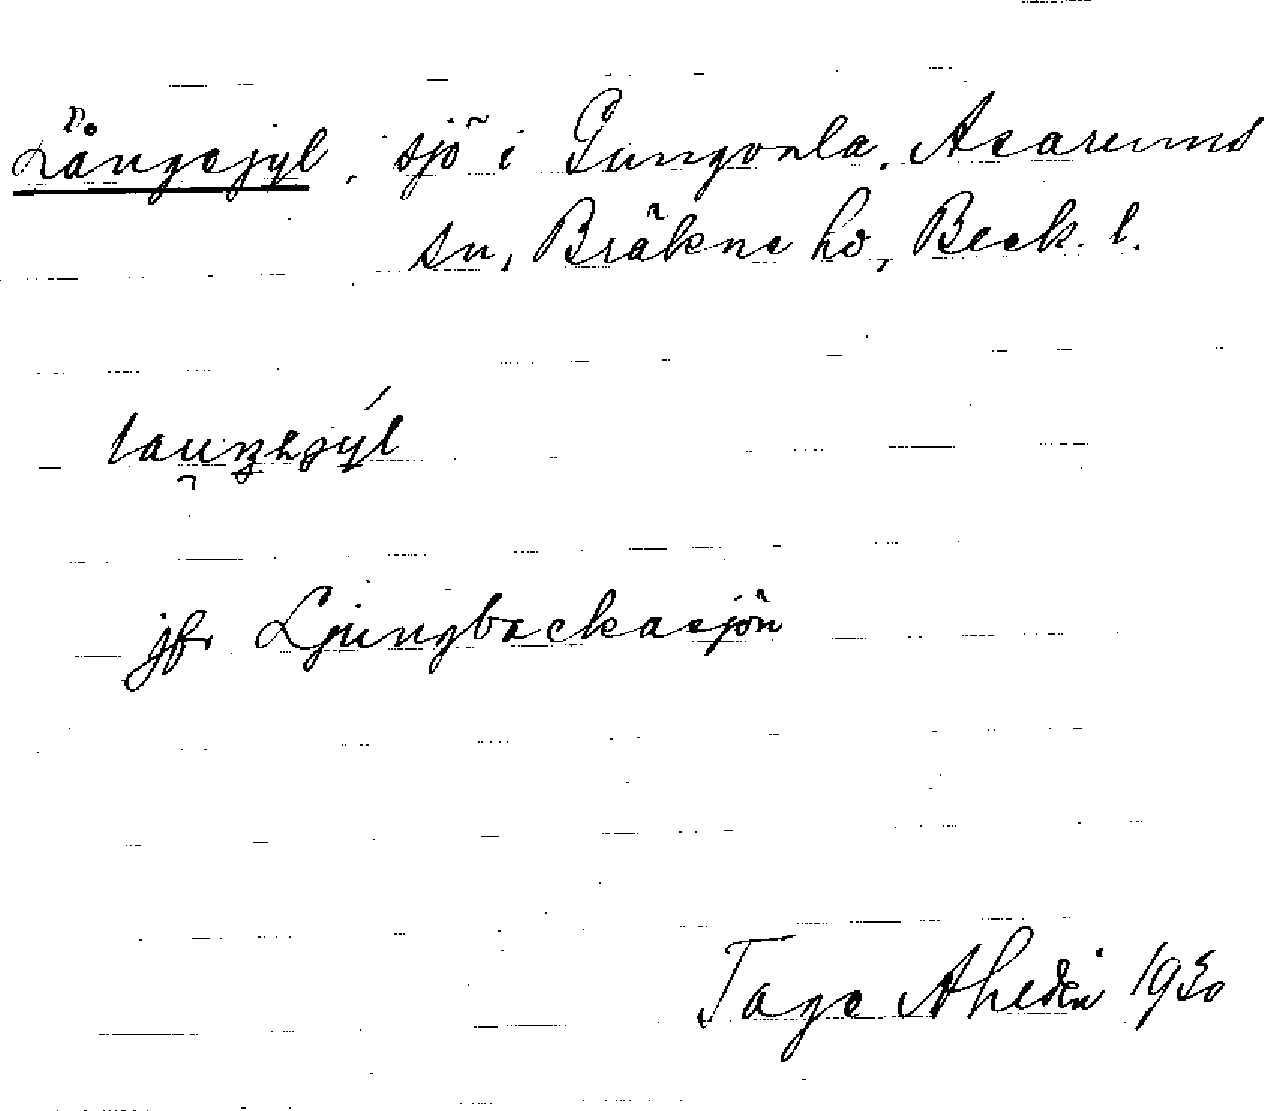 Långasjyl, sjö i Gungvala, Asarums
sn, Bräkne hd, Bleck. l.
jfr Ljungbackasjön
Tage Ahldén 1930